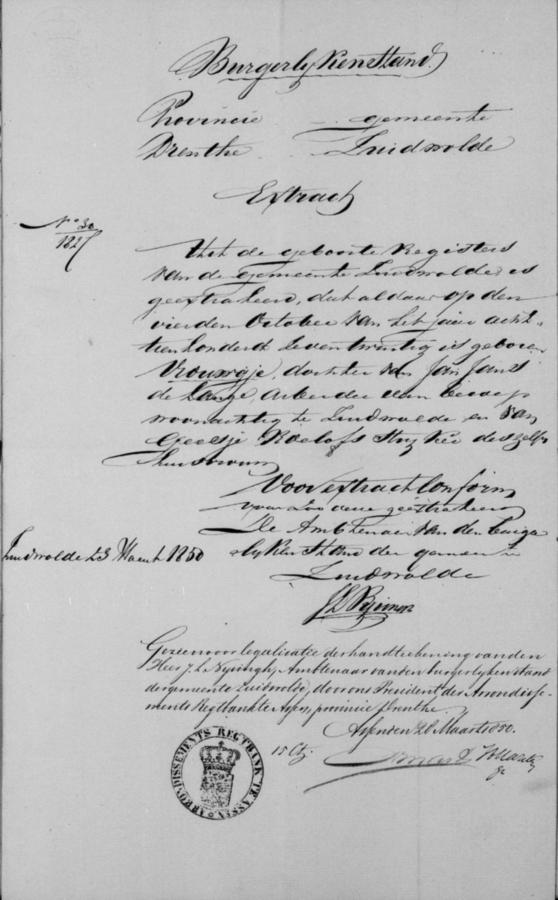 Burgerlyken Stand
Provincie gemeente
Drenthe Zuidwolde
Extract
No 30
1827
Uit de geboorte Registers
van de gemeente Zuidwolde is
geextraheerd, dat aldaar op den
vierden October van het jaar acht
tien honderd zeven twintig is geboren
Vrouwgje, dochter van Jan Jans
de Lange, arbeider van beroep
woonachtig te Zuidwolde en van
Geesje Roelofs deszelfs
Huisvrouw
Voor extract Conform
De Ambtenaar van den burge
Zuidwolde 23 Maart 1850
lyken Stand der gemeente
Zuidwolde
Gezien voor legalisatie der handteekening van den
Heer J. L. Nysingh, Ambtenaar van den burgerlyken stand
der gemeente Zuidwolde, door ons President der Arrondisse-
ments Regtbank te Assen, provincie Drenthe.
Assen den 26 Maart 1850.
15 Ct.
ARRONDISSEMENTS REGTBANK TE ASSEN